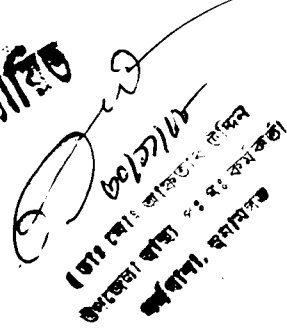 ৩০/১১/১৮
(ডাঃ মোঃ আকতার উদ্দিন
উপজেলা স্বাস্থ্য ও পঃ পঃ কর্মকর্তা
ধর্মপাশা, সুনামগঞ্জ